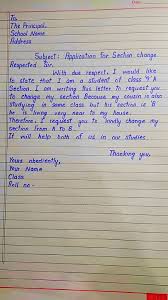 To
The Principal.
School Name
Address
Subject: Application for Section change
Respected Sir.
With due respect, I would like
to state that I am a student of class 9 'A'
Section. I am writing this letter to request you
to change my section Because my cousin is also
studying in same class but his section is B
he is living very near to my house.
Therefore, I request you to kindly change my
section from A to B.
It will help both of us in our studies.
Thanking you,
Yours obediently,
Your Name
Class
Roll no -